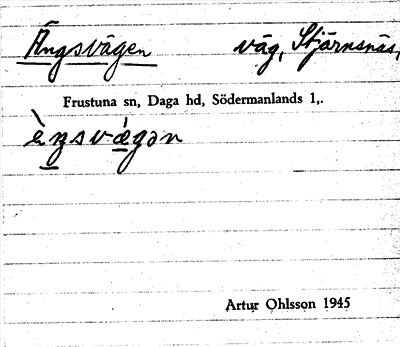 Ängsvägen väg, Stjärnsnäs,
Frustuna sn, Daga hd, Södermanlands l,.
èŋsvægən
Artur Ohlsson 1945